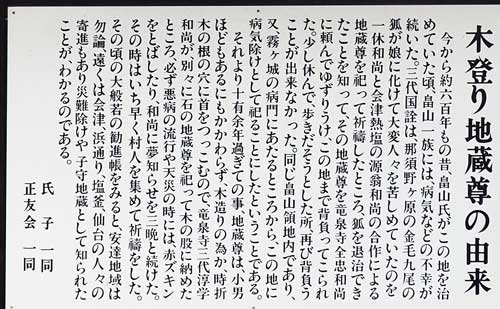 木登り地蔵尊の由来
今から約六百年もの昔、畠山氏がこの地を治
めていた頃、畠山一族には、病気などの不幸が
続いた。三代国詮は、那須野ヶ原の金毛九尾の
狐が娘に化けて大変人々を苦しめていたのを
一休和尚と会津熱塩の源翁和尚の合作による
地蔵尊を祀って祈禱したところ、狐を退治でき
たことを知って、その地蔵尊を竜泉寺全忠和尚
に頼んでゆずりうけ、この地まで背負ってこられ
た。少し休んで、歩きだそうとした所、再び背負う
ことが出来なかった。同じ畠山領地内であり、
又、霧ヶ城の病門にあたるところから、この地に
病気除けとして祀ることにしたということである。
それより十有余年過ぎての事、地蔵尊は、小男
ほどもあるにもかかわらず、木造りの為か、時折
木の根の穴に首をつっこむので、竜泉寺三代淳学
和尚が、別々に石の地蔵尊を祀って木の股に納めた
ところ、必ず悪病の流行や天災の時には、赤ズキン
をとばしたり、和尚に夢知らせを三晩と続けた。
その時はいち早く村人を集めて祈禱をした。
その頃の大般若の勧進帳をみると、安達地域は
勿論、遠くは会津、浜通り、塩釜、仙台の人々の
寄進もあり、災難除けや、子守地蔵として知られた
ことがわかるのである。
氏子一同
正友会一同